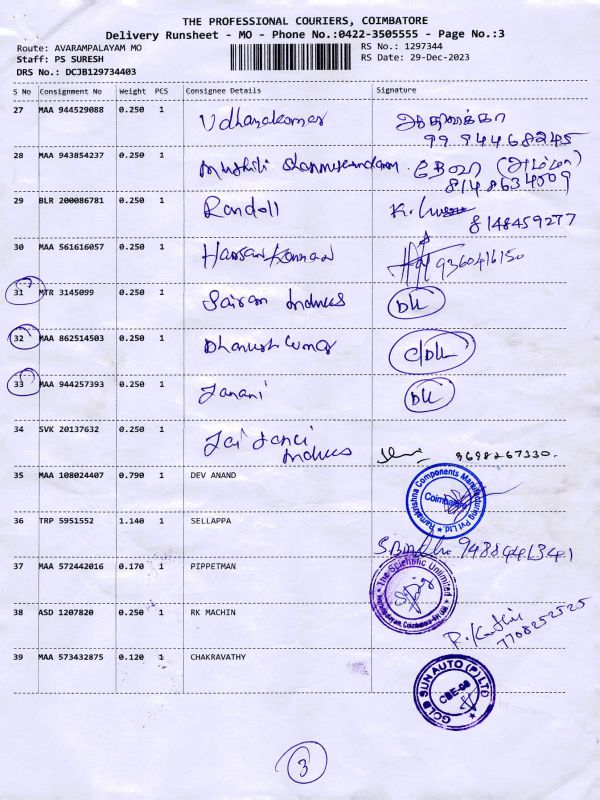 THE PROFESSIONAL COURIERS, COIMBATORE
Delivery Runsheet - MO - Phone No.:0422-3505555 - Page No.:3
Route: AVARAMPALAYAM MO
RS No.: 1297344
Staff: PS SURESH
RS Date: 29-Dec-2023
DRS No.: DCJB129734403
S No Consignment No Weight PCS Consignee Details Signature
27 MAA 944529088 0.250 1 Udhayakumar
99 94468245
28 MAA 943854237 0.250 1
8148634509
29 BLR 200086781 0.250 1 Randoll
8148459277
30 MAA 561616057 0.250 1 9360416150
31 MTR 3145099 0.250 1 Sairam Indus
32 MAA 862514503 0.250 1
33 MAA 944257393 0.250 1 Janani
34 SVK 20137632 0.250 1 Jai Janci
Indus 9698267330.
35 MAA 108024407 0.790 1 DEV ANAND
Ramakrishna Components Manufacturing Pvt Ltd
Coimbatore
36 TRP 5951552 1.140 1 SELLAPPA
9488441341
37 MAA 572442016 0.170 1 PIPPETMAN
The Scientific Unlimited
38 ASD 1207820 0.250 1 RK MACHIN
7708252525
39 MAA 573432875 0.120 1 CHAKRAVATHY
GOLD SUN AUTO (P) LTD
CBE-06
3